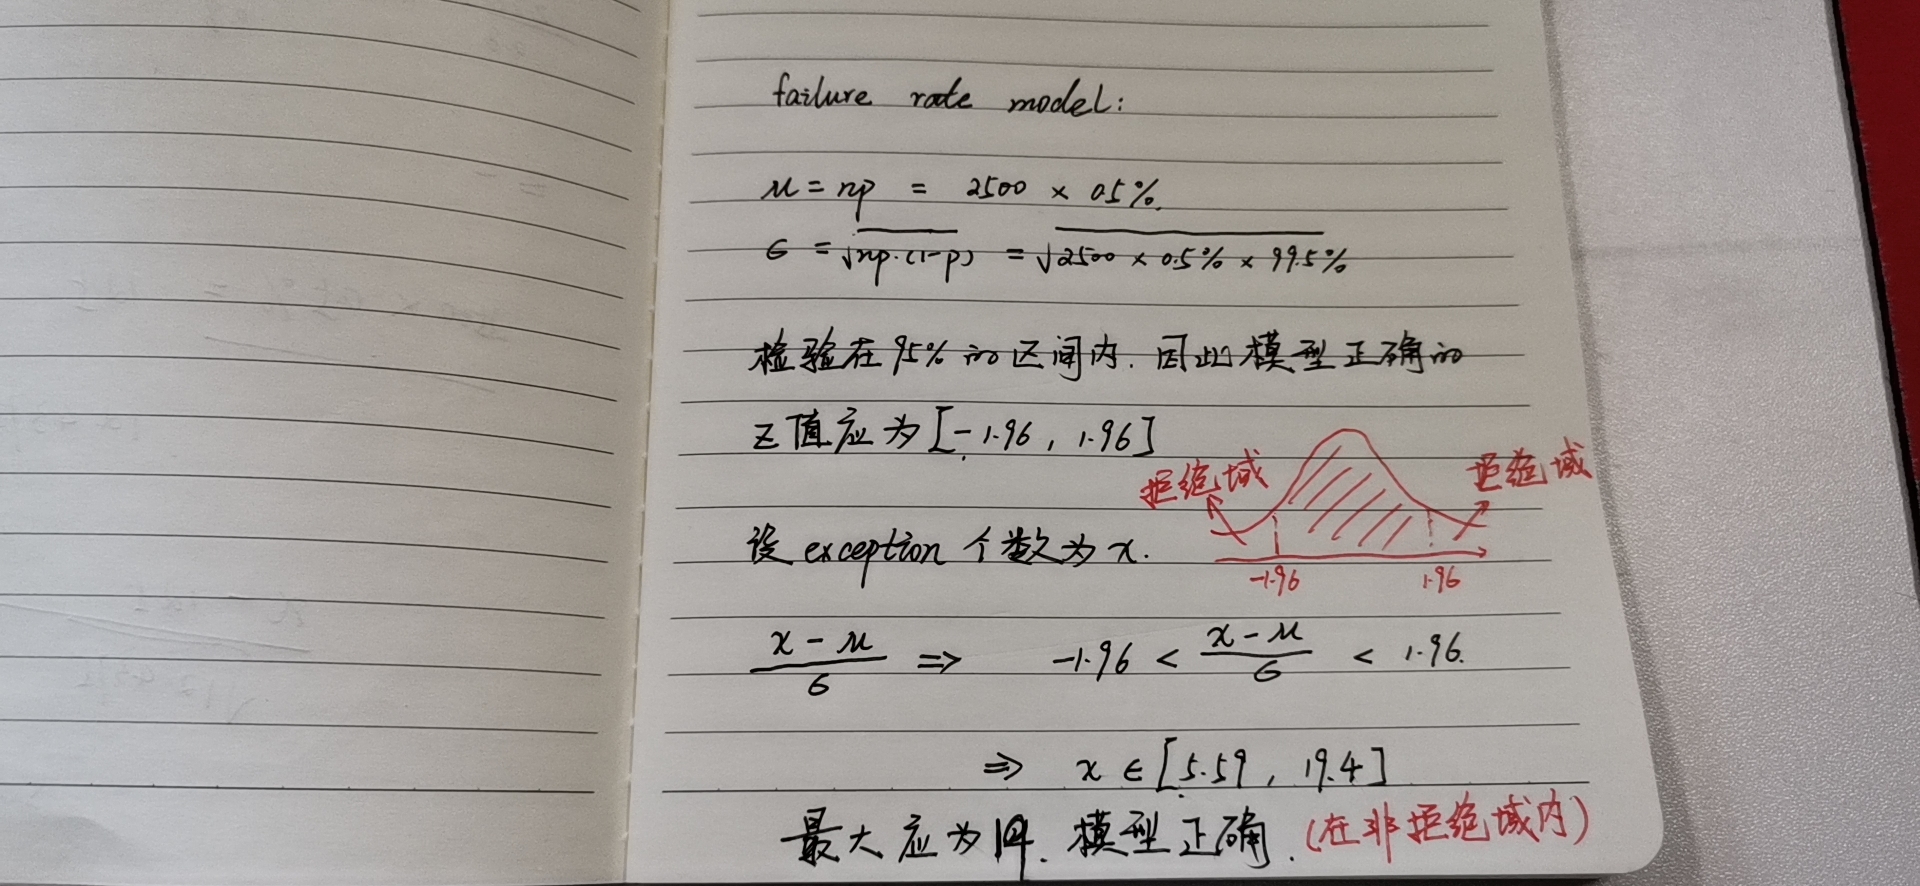 failure rate model:
μ = np = 2500 × 0.5%.
σ = √np·(1-p) = √2500 × 0.5% × 99.5%
检验在95%的区间内. 因此模型正确的
Z值应为[-1.96, 1.96]
拒绝域 拒绝域
设exception个数为x.
-1.96 1.96
x-μ/σ ⇒ -1.96 < x-μ/σ < 1.96.
⇒ x ∈ [5.59, 19.4]
最大应为19. 模型正确. (在非拒绝域内)